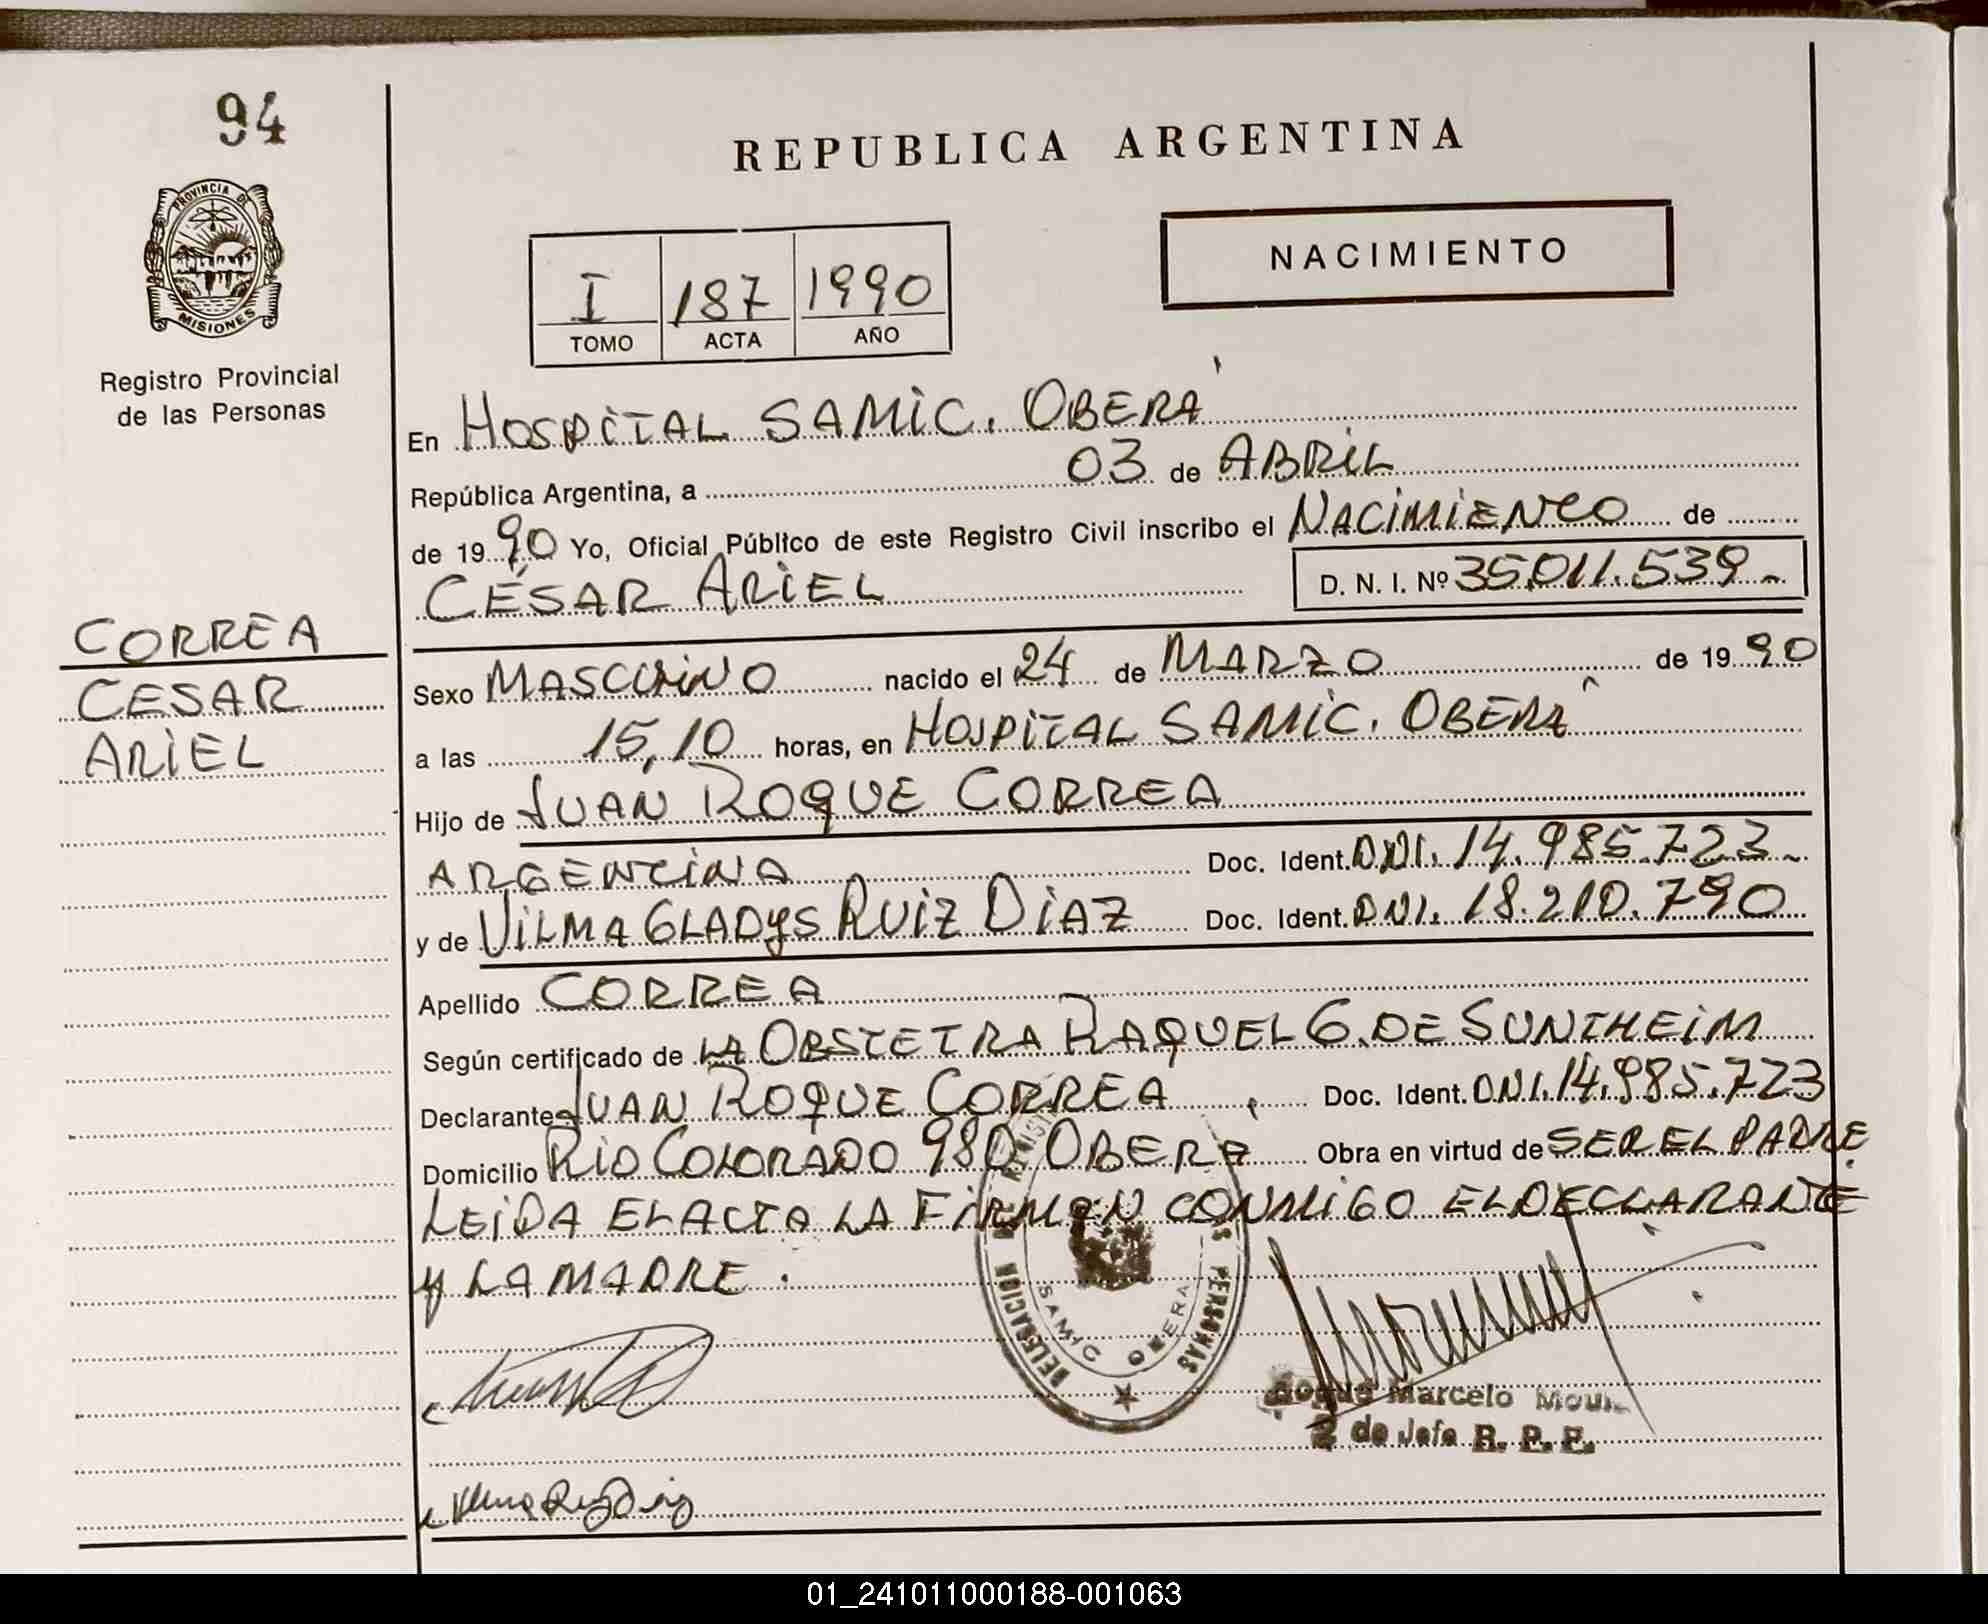 94
REPUBLICA ARGENTINA
PROVINCIA DE
MISIONES
Registro Provincial
de las Personas
NACIMIENTO
I 187 1990
TOMO ACTA AÑO
En HOSPITAL SAMIC. OBERÁ
República Argentina, a 03 de ABRIL
de 1990 Yo, Oficial Público de este Registro Civil inscribo el NACIMIENTO de
CÉSAR ARIEL D. N. I. Nº 35.011.539-
CORREA
CESAR
ARIEL
Sexo MASCULINO nacido el 24 de MARZO de 1990
a las 15,10 horas, en HOSPITAL SAMIC. OBERÁ
Hijo de JUAN ROQUE CORREA
ARGENTINA Doc. Ident. DNI. 14.985.723-
y de VILMA GLADYS RUIZ DIAZ Doc. Ident. DNI. 18.210.790
Apellido CORREA
Según certificado de LA OBSTETRA RAQUEL G. DE SUNTHEIM
Declarante JUAN ROQUE CORREA Doc. Ident. DNI. 14.985.723
Domicilio RIO COLORADO 980 OBERÁ Obra en virtud de SER EL PADRE.
LEIDA EL ACTA LA FIRMAN CONMIGO EL DECLARANTE
Y LA MADRE.
DELEGACION PERSONAS
SAMIC OBERA
Roque Marcelo
2 de Jefe R. P. P.
Vilma Ruiz Diaz
01_241011000188-001063